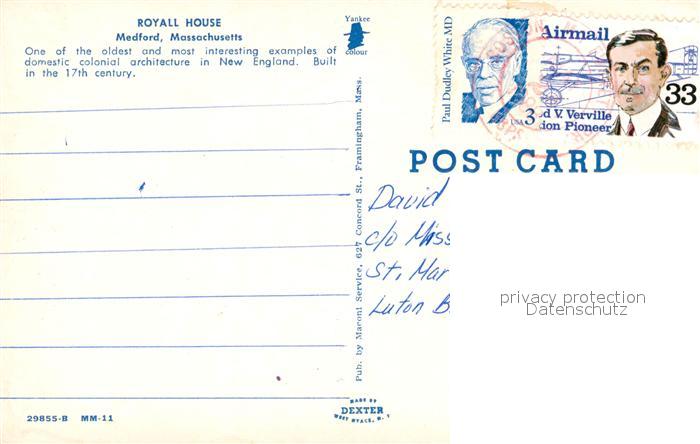 ROYALL HOUSE
Medford, Massachusetts
One of the oldest and most interesting examples of
domestic colonial architecture in New England. Built
in the 17th century.
Yankee
colour
Paul Dudley White MD
USA 3
Airmail
33
d V. Verville
ion Pioneer
POST CARD
David
c/o Miss
St. Mar
Luton B
privacy protection
Datenschutz
Pub. by Maconi Service, 627 Concord St., Framingham, Mass.
29855-B MM-11
MADE BY
DEXTER
WEST NYACK, N. Y.